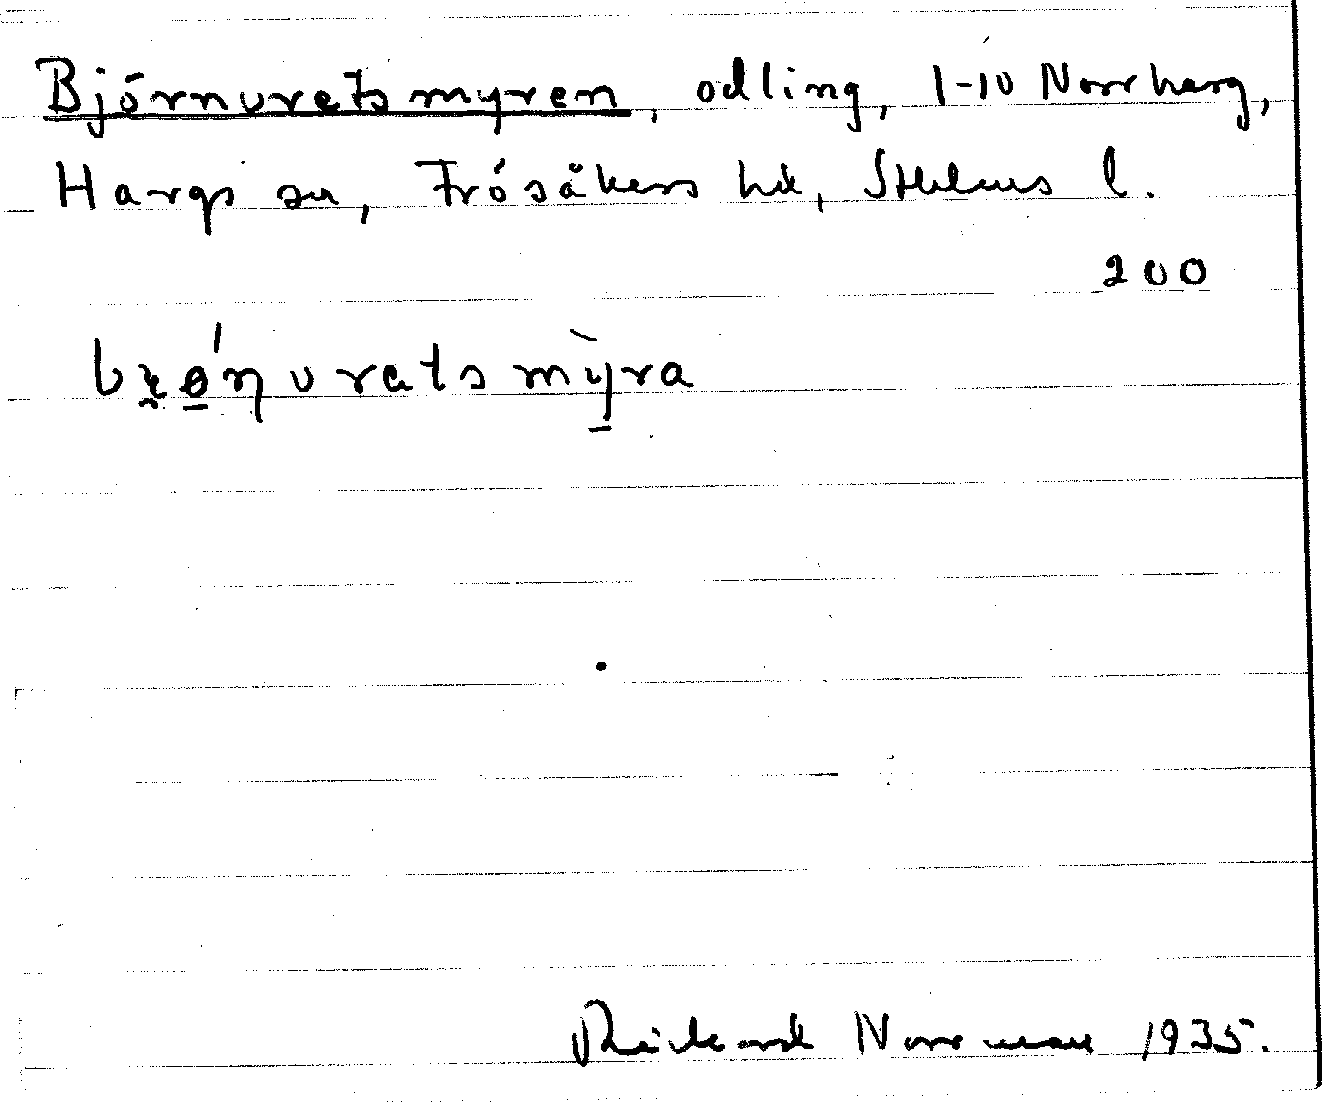 Björnuretsmyren, odling, 1-10 Norrharg,
Hargs sn, Frösåkers hd, Sthlms l.
200
uratsmỳra
Rickard Norrman 1935.